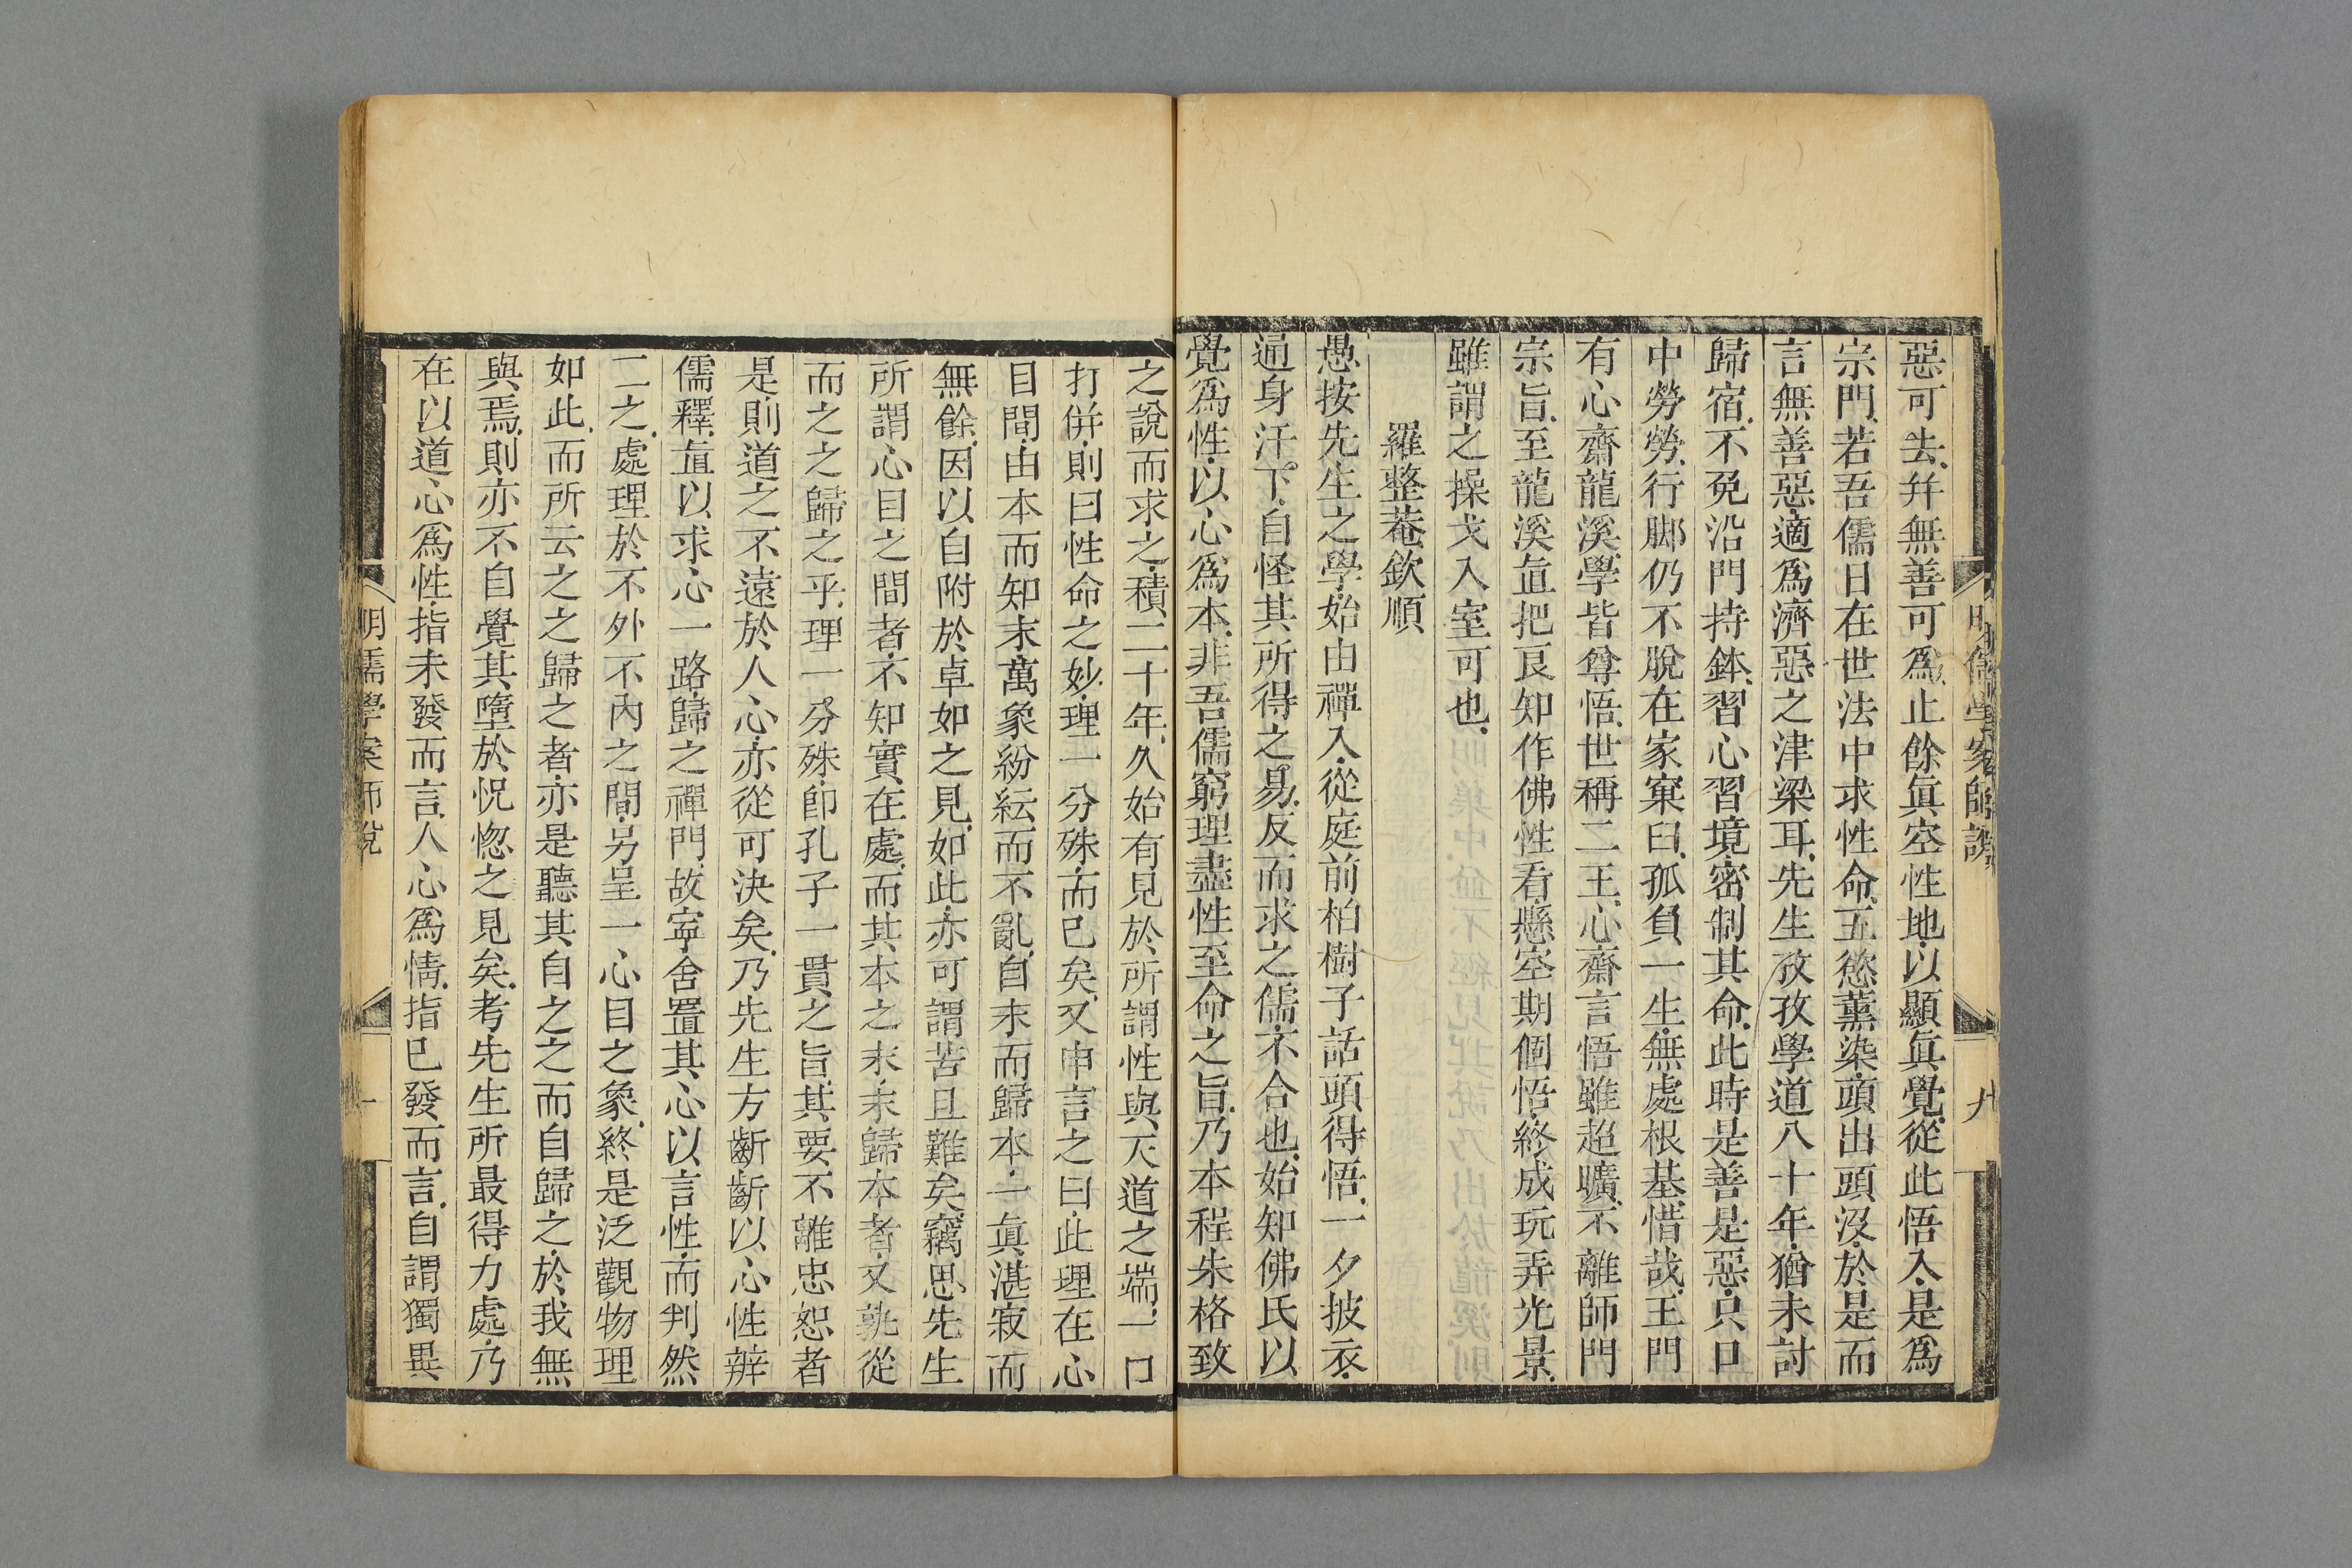 明儒學案師說
九
惡可去、并無善可爲、止餘眞空性地、以顯眞覺、從此悟入、是爲
宗門、若吾儒日在世法中求性命、五慾薰染、頭出頭沒、於是而
言無善惡、適爲濟惡之津梁耳、先生孜孜學道八十年、猶未討
歸宿、不免沿門持鉢、習心習境、密制其命、此時是善是惡、只口
中勞勞、行脚仍不脫在家窠臼、孤負一生、無處根基、惜哉、王門
有心齋龍溪、學皆尊悟、世稱二王、心齋言悟雖超曠、不離師門
宗旨、至龍溪、直把良知作佛性看、懸空期個悟、終成玩弄光景、
雖謂之操戈入室可也、
羅整菴欽順
愚按先生之學、始由禪入、從庭前柏樹子話頭得悟、一夕披衣、
通身汗下、自怪其所得之易、反而求之儒、不合也、始知佛氏以
覺爲性、以心爲本、非吾儒窮理盡性至命之旨、乃本程朱格致
之說而求之、積二十年、久始有見於、所謂性與天道之端、一口
打併、則曰性命之妙、理一分殊、而已矣、又申言之曰、此理在心
目間、由本而知末、萬象紛紜而不亂、自末而歸本、一眞湛寂而
無餘、因以自附於卓如之見、如此、亦可謂苦且難矣、竊思先生
所謂心目之間者、不知實在處、而其本之末、末歸本者、又孰從
而之之歸之乎、理一分殊、卽孔子一貫之旨、其要不離忠恕者
是、則道之不遠於人心、亦從可決矣、乃先生方齗齗以心性辨
儒釋、直以求心一路、歸之禪門、故寧舍置其心以言性、而判然
二之、處理於不外不內之間、另呈一心目之象、終是泛觀物理
如此、而所云之之歸之者、亦是聽其自之之而自歸之、於我無
與焉、則亦不自覺其墮於怳惚之見矣、考先生所最得力處、乃
在以道心爲性、指未發而言、人心爲情、指已發而言、自謂獨異
明儒學案師說